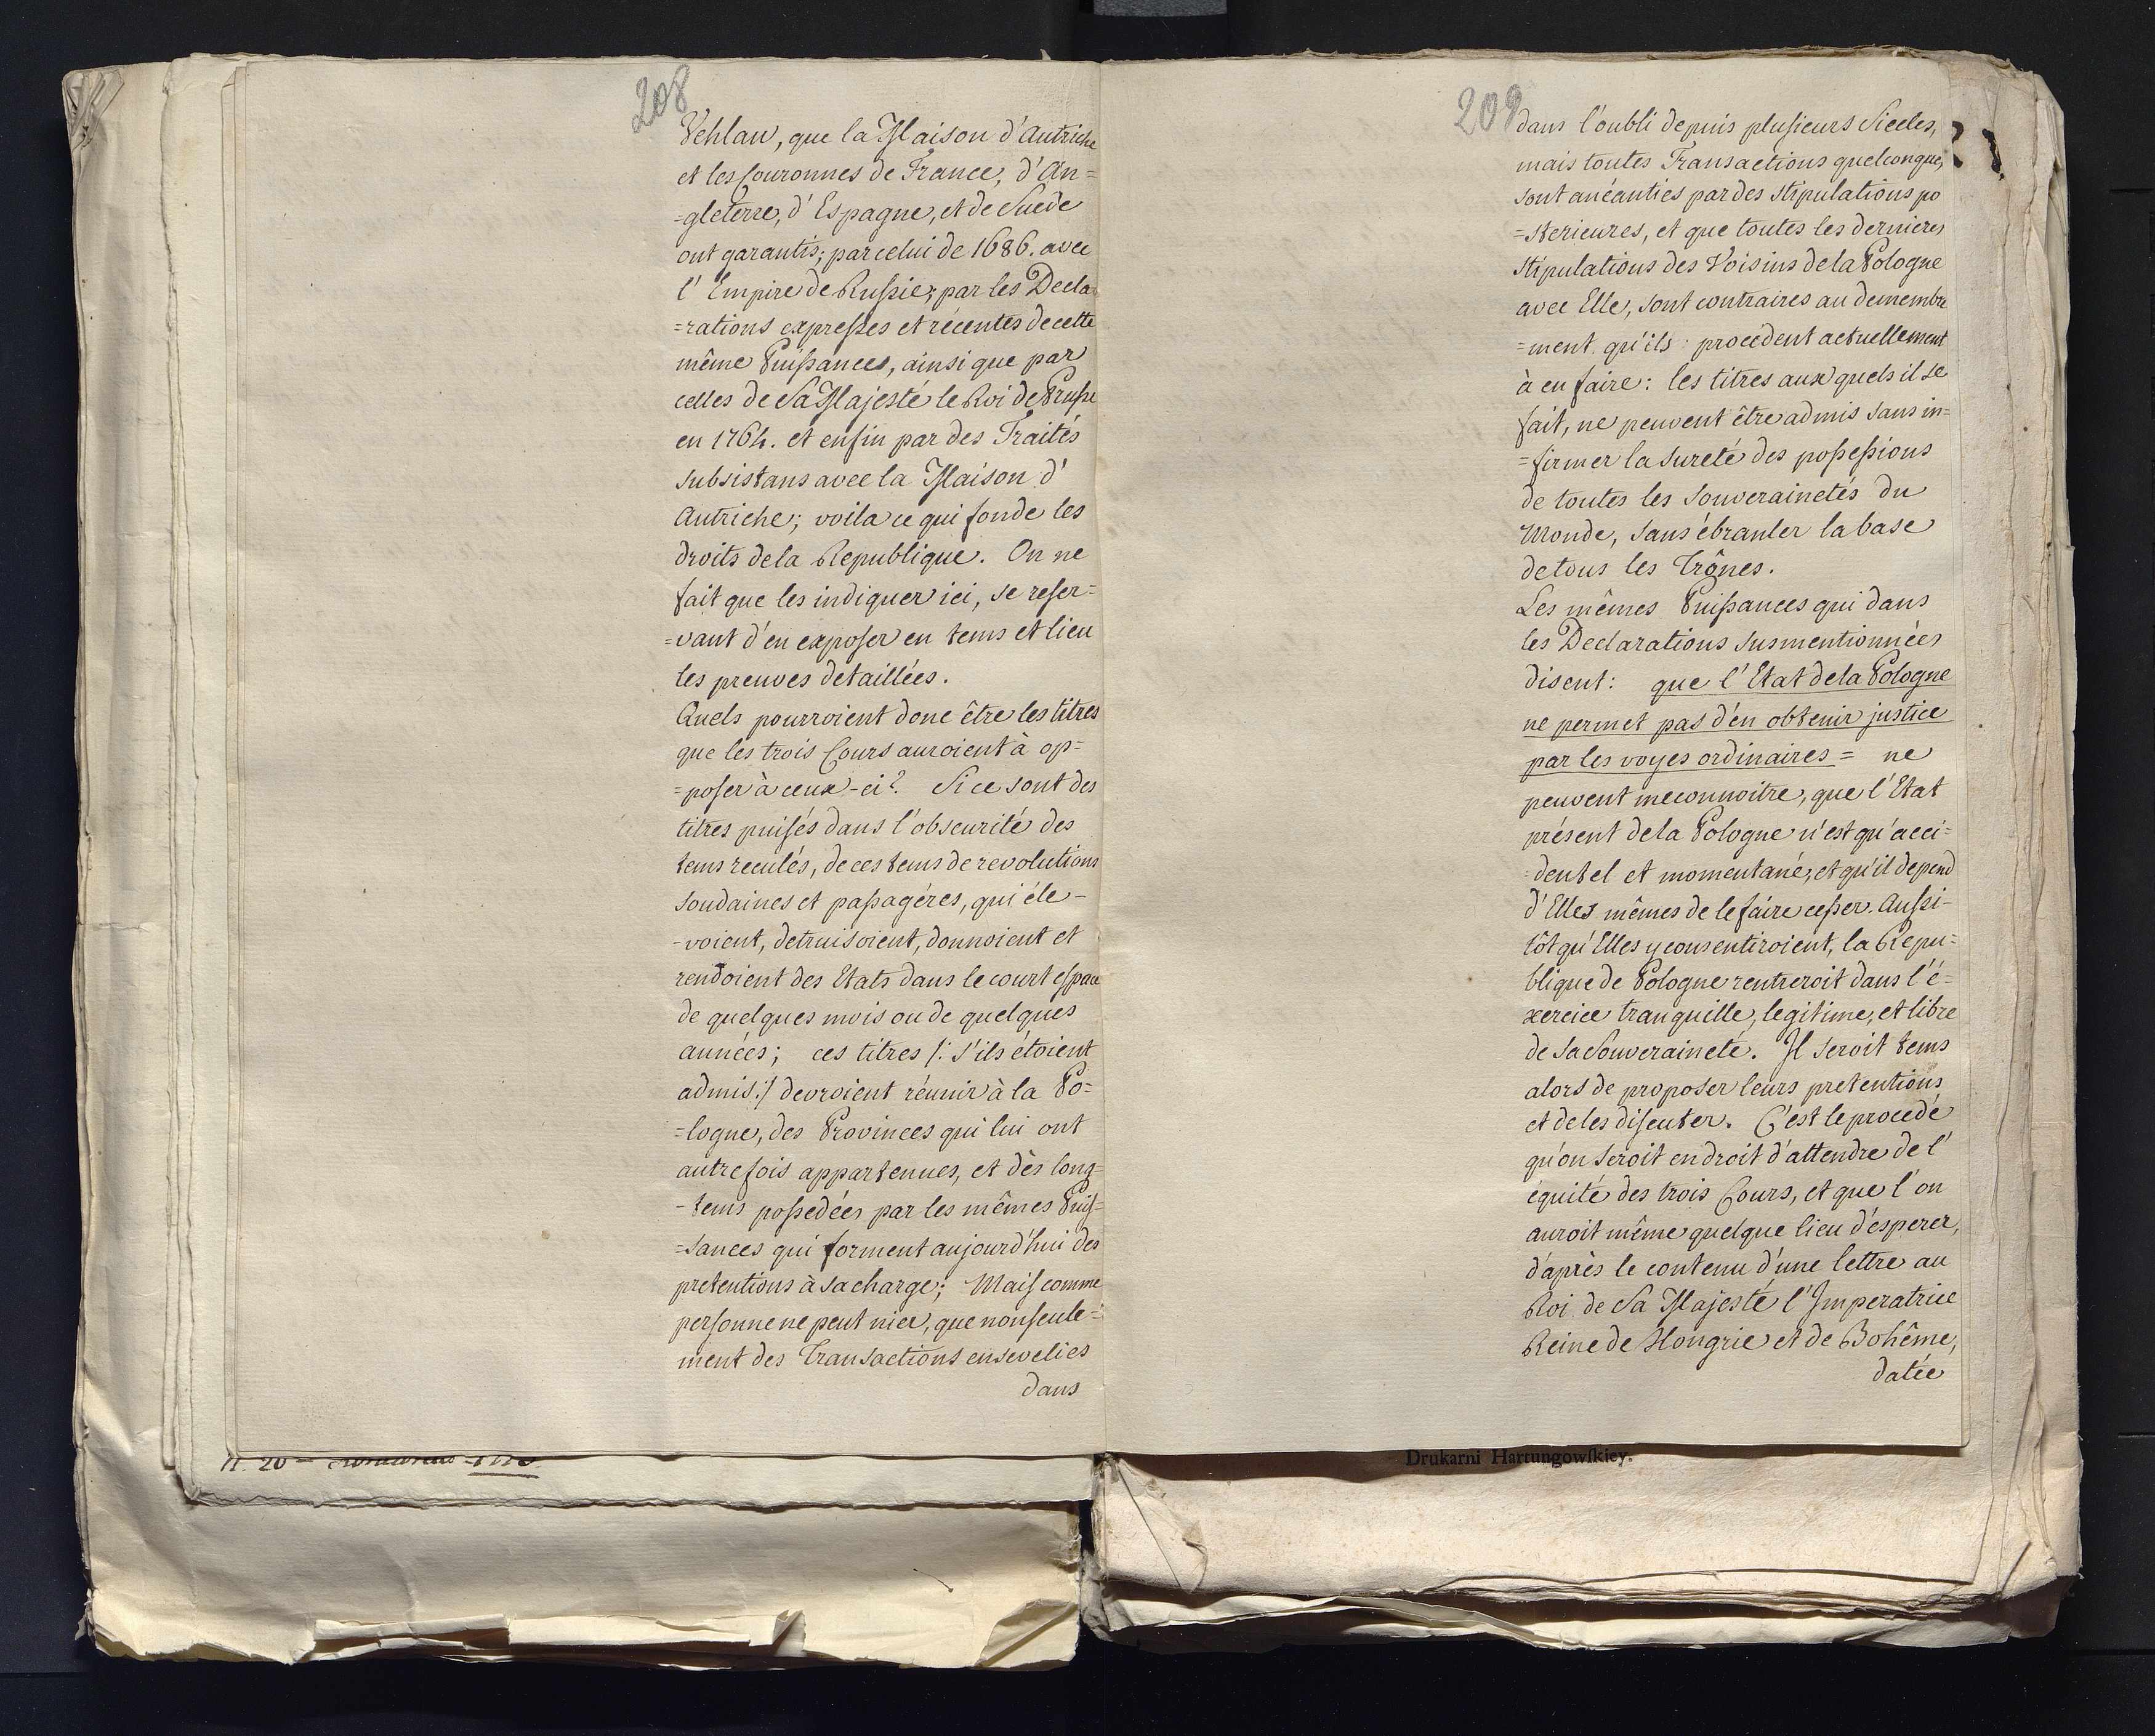 208
Vehlau, que la Maison d'Autriche
et les Couronnes de France, d'An=
=gleterre, d'Espagne, et de Suede
ont garantis; par celui de 1686. avec
l'Empire de Russie; par les Decla=
=rations expresses et récentes de cette
même Puissances, ainsi que par
celles de Sa Majesté le Roi de Prusse
en 1764. et enfin par des Traités
subsistans avec la Maison d'
Autriche; voila ce qui fonde les
droits de la Republique. On ne
fait que les indiquer ici, se reser=
=vant d'en exposer en tems et lieu
les preuves detaillées.
Quels pourroient donc être les titres
que les trois Cours auroient à op=
=poser à ceux-ci? Si ce sont des
titres puisés dans l'obscurité des
tems reculés, de ces tems de revolutions
soudaines et passagéres, qui éle-
-voient, detruisoient, donnoient et
rendoient des Etats dans le court espace
de quelques mois ou de quelques
années; ces titres /: s'ils étoient
admis:/ devroient réunir à la Po=
=logne, des Provinces qui lui ont
autrefois appartenues, et dès long=
-tems possedées par les mêmes Puis=
=sances qui forment aujourd'hui des
pretentions à sa charge; Mais comme
personne ne peut nier, que non seule=
ment des Transactions ensevelies
dans
209
dans l'oubli depuis plusieurs Siecles,
mais toutes Transactions quelconques,
sont anéanties par des stipulations po
=sterieures, et que toutes les dernieres
stipulations des Voisins de la Pologne
avec Elle, sont contraires au demembre
=ment qu'ils procédent actuellement
à en faire: les titres aux quels il se
fait, ne peuvent être admis sans in=
=firmer la sureté des possessions
de toutes les souverainetés du
Monde, sans ébranler la base
de tous les Trônes.
Les mêmes Puissances qui dans
les Declarations susmentionnées
disent: que l'Etat de la Pologne
ne permet pas d'en obtenir justice
par les voyes ordinaires = ne
peuvent meconnoitre, que l'Etat
présent de la Pologne n'est qu'acci=
=dentel et momentané, et qu'il depend
d'Elles mêmes de le faire cesser. Aussi-
tôt qu'Elles y consentiroient, la Repu=
blique de Pologne rentreroit dans l'é=
xercice tranquille, legitime, et libre
de sa Souveraineté. Il seroit tems
alors de proposer leurs pretentions
et de les discuter. C'est le procedé
qu'on seroit en droit d'attendre de l'
équité des trois Cours, et que l'on
auroit même quelque lieu d'esperer,
d'après le contenu d'une lettre au
Roi de Sa Majesté l'Imperatrice
Reine de Hongrie et de Bohême,
datée
Drukarni Hartungowſkiey.